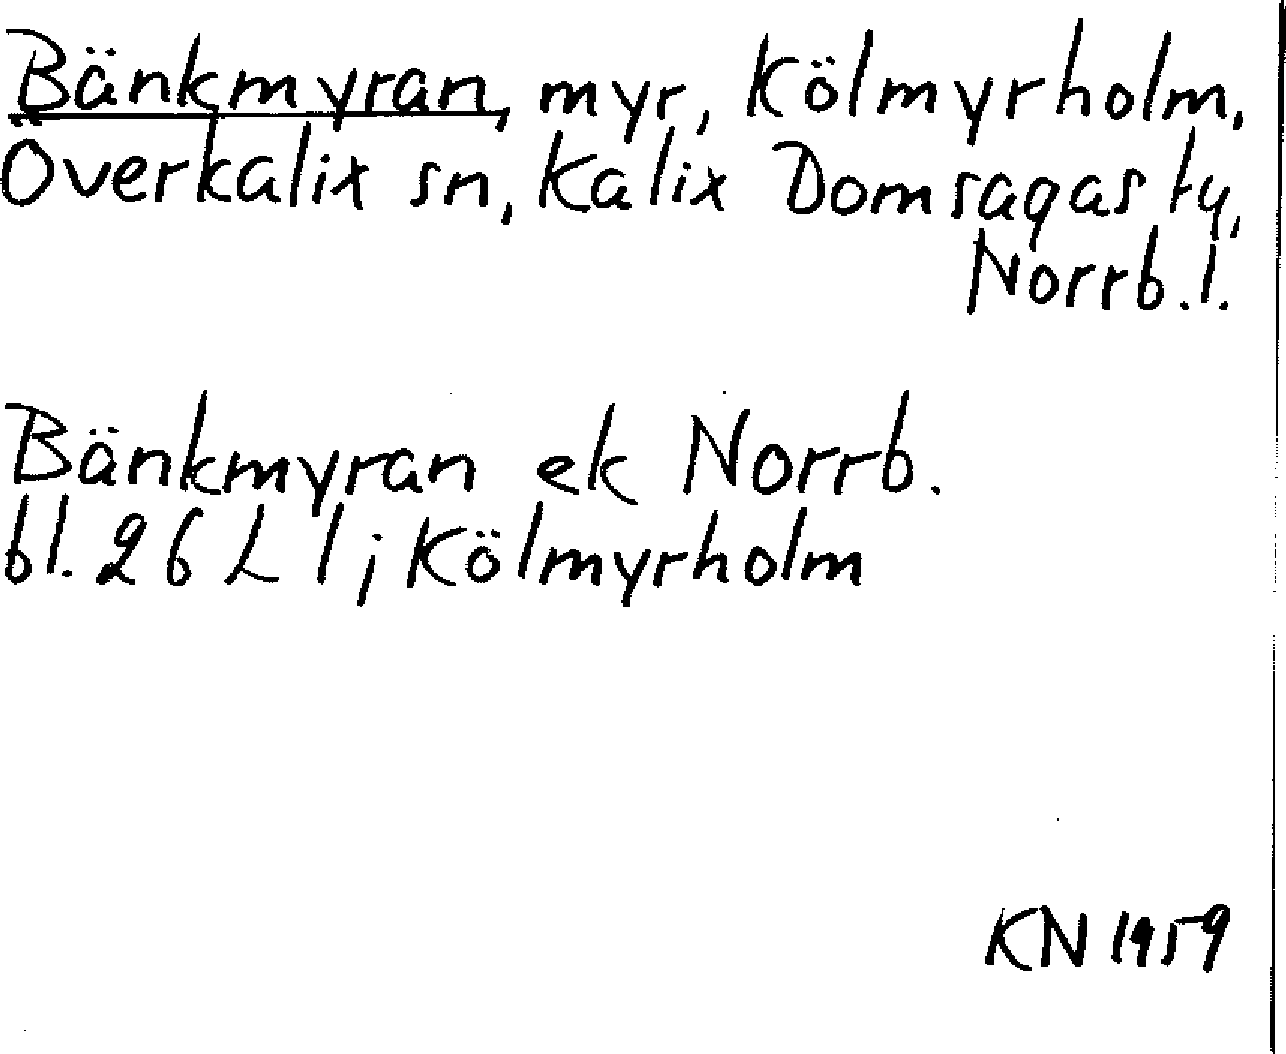 Bänkmyran, myr, Kölmyrholm,
Överkalix sn, Kalix Domsagas tg,
Norrb. l.
Bänkmyran ek Norrb.
bl. 26 L 1; Kölmyrholm
KN 1959